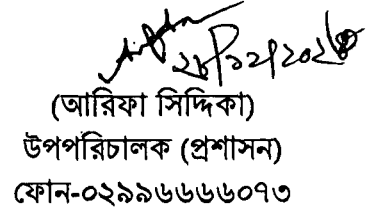 (আরিফা সিদ্দিকা)
উপপরিচালক (প্রশাসন)
ফোন-০২৯৯৬৬৬৬০৭৩